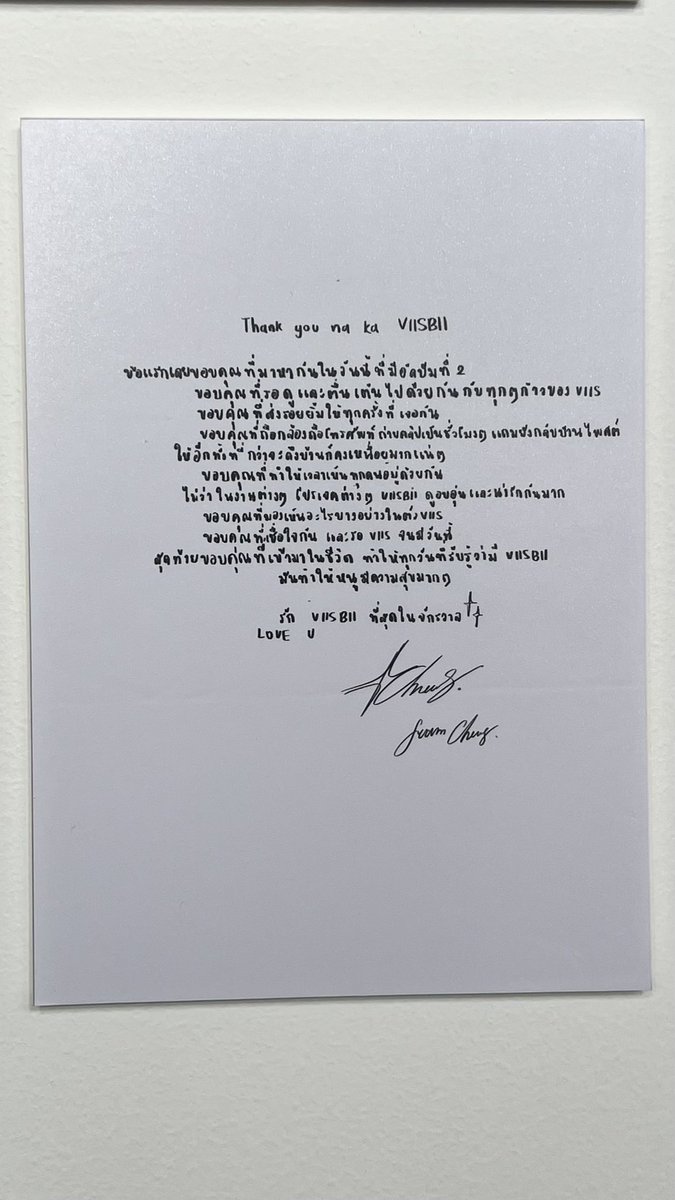 Thank you na ka VIISBII
ข้อแรกเลยขอบคุณที่มาหากันในวันนี้ ที่มีอัลบัมที่ 2
ขอบคุณที่รอดู และตื่นเต้นไปด้วยกัน กับทุกๆก้าวของ VIIS
ขอบคุณที่ส่งรอยยิ้มให้ทุกครั้งที่เจอกัน
ขอบคุณที่ถือกล้องถือโทรศัพท์ ถ่ายคลิปเป็นชั่วโมงๆ แถมยังกลับบ้านโพสต์
ให้อีกทั้งที่กว่าจะถึงบ้านก็คงเหนื่อยมากแน่ๆ
ขอบคุณที่ทำให้เวลาเห็นทุกคนอยู่ด้วยกัน
ไม่ว่าในงานต่างๆ โปรเจคต่างๆ VIISBII ดูอบอุ่นและน่ารักกันมาก
ขอบคุณที่มองเห็นอะไรบางอย่างในตัว VIIS
ขอบคุณที่เชื่อใจกัน และรอ VIIS จนมีวันนี้
สุดท้ายขอบคุณที่เข้ามาในชีวิต ทำให้ทุกวันที่รับรู้ว่ามี VIISBII
มันทำให้หนูมีความสุขมากๆ
รัก VIISBII ที่สุดในจักรวาล
LOVE U